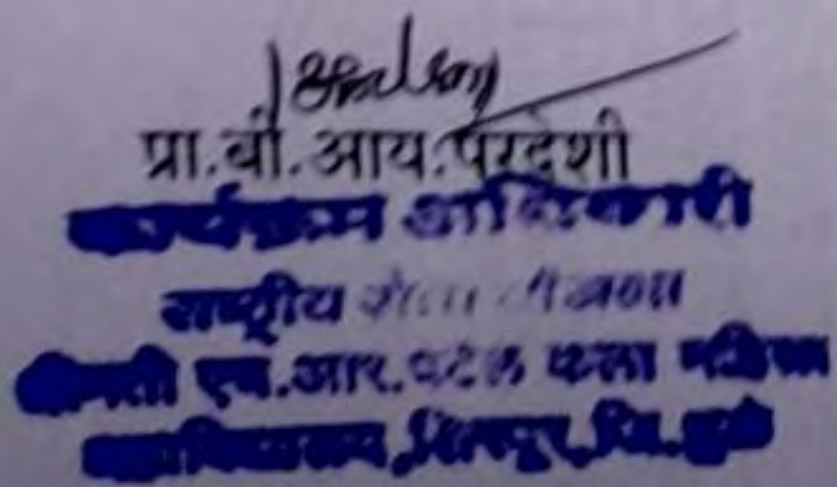 प्रा.बी.आय.परदेशी
कार्यक्रम अधिकारी
राष्ट्रीय सेवा योजना
श्रीमती एच.आर.पटेल कला महिला
महाविद्यालय,शिरपूर,जि.धुळे